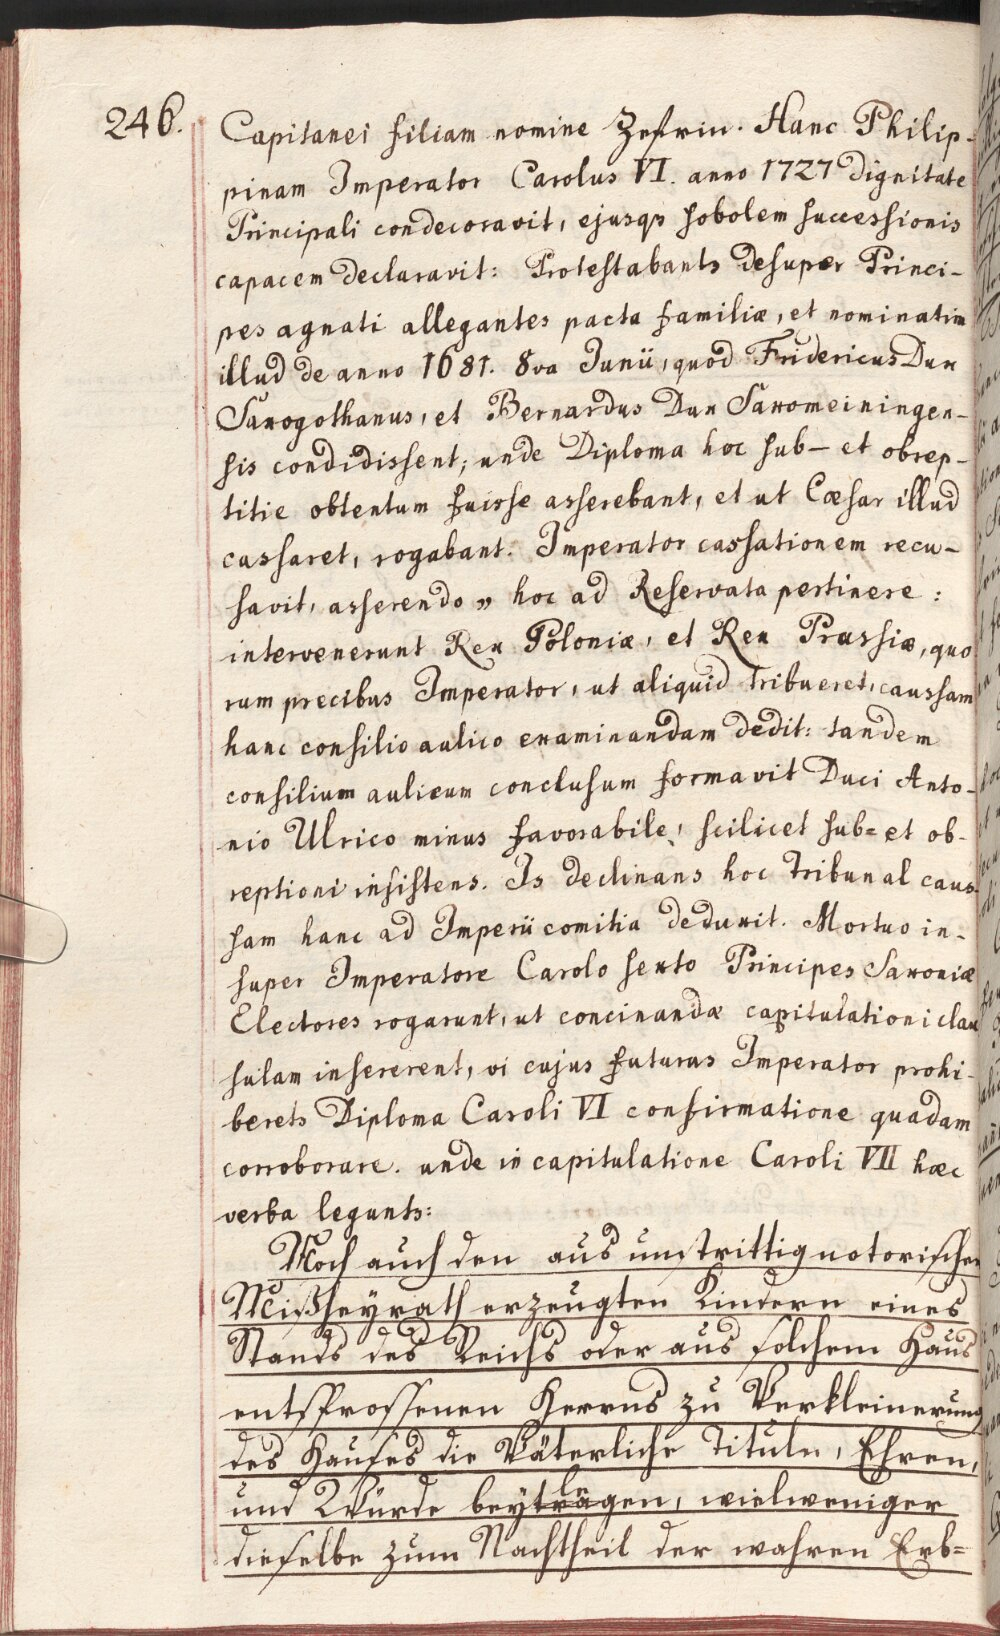 246.
Capitanei filiam nomine Zefrin. Hanc Philip-
pinam Imperator Carolus VI. anno 1727 dignitate
Principali condecoravit, ejusqs sobolem successionis
capacem declaravit: Protestabants desuper Princi-
pes agnati allegantes pacta familiæ, et nominatim
illud de anno 1681. 8va Junii, quod Fridericus Dux
Saxogothanus, et Bernardus Dux Saxomeiningen-
sis condidissent; unde Diploma hoc sub- et obrep-
titie obtentum fuisse asserebant, et ut Cæsar illud
cassaret, rogabant. Imperator cassationem recu-
savit, asserendo „ hoc ad Reservata pertinere:
intervenerunt Rex Poloniæ, et Rex Prussiæ, quo
rum precibus Imperator, ut aliquid tribueret, caussam
hanc consilio aulico examinandam dedit: tandem
consilium aulicum conclusum formavit Duci Anto-
nio Ulrico minus favorabile, scilicet sub= et ob-
reptioni insistens. Is declinans hoc Tribunal caus-
sam hanc ad Imperii comitia deduxit. Mortuo in-
super Imperatore Carolo sexto Principes Saxoniæ
Electores rogarunt, ut concinandæ capitulationi clau
sulam insererent, vi cujus futurus Imperator prohi-
berets Diploma Caroli VI confirmatione quadam
corroborare. unde in capitulatione Caroli VII hæc
verba legunts:
Noch auch den aus unstrittig notorischen
Mißheyrath erzeugten Kindern eines
Stands des Reichs oder aus solchem Haus
entsprossenen Herrns zu Verkleinerung
des Hauses die Väterliche Tituln, Ehren,
und Würde beytrlegen, vielweniger
dieselbe zum Nachtheil der wahren Erb=